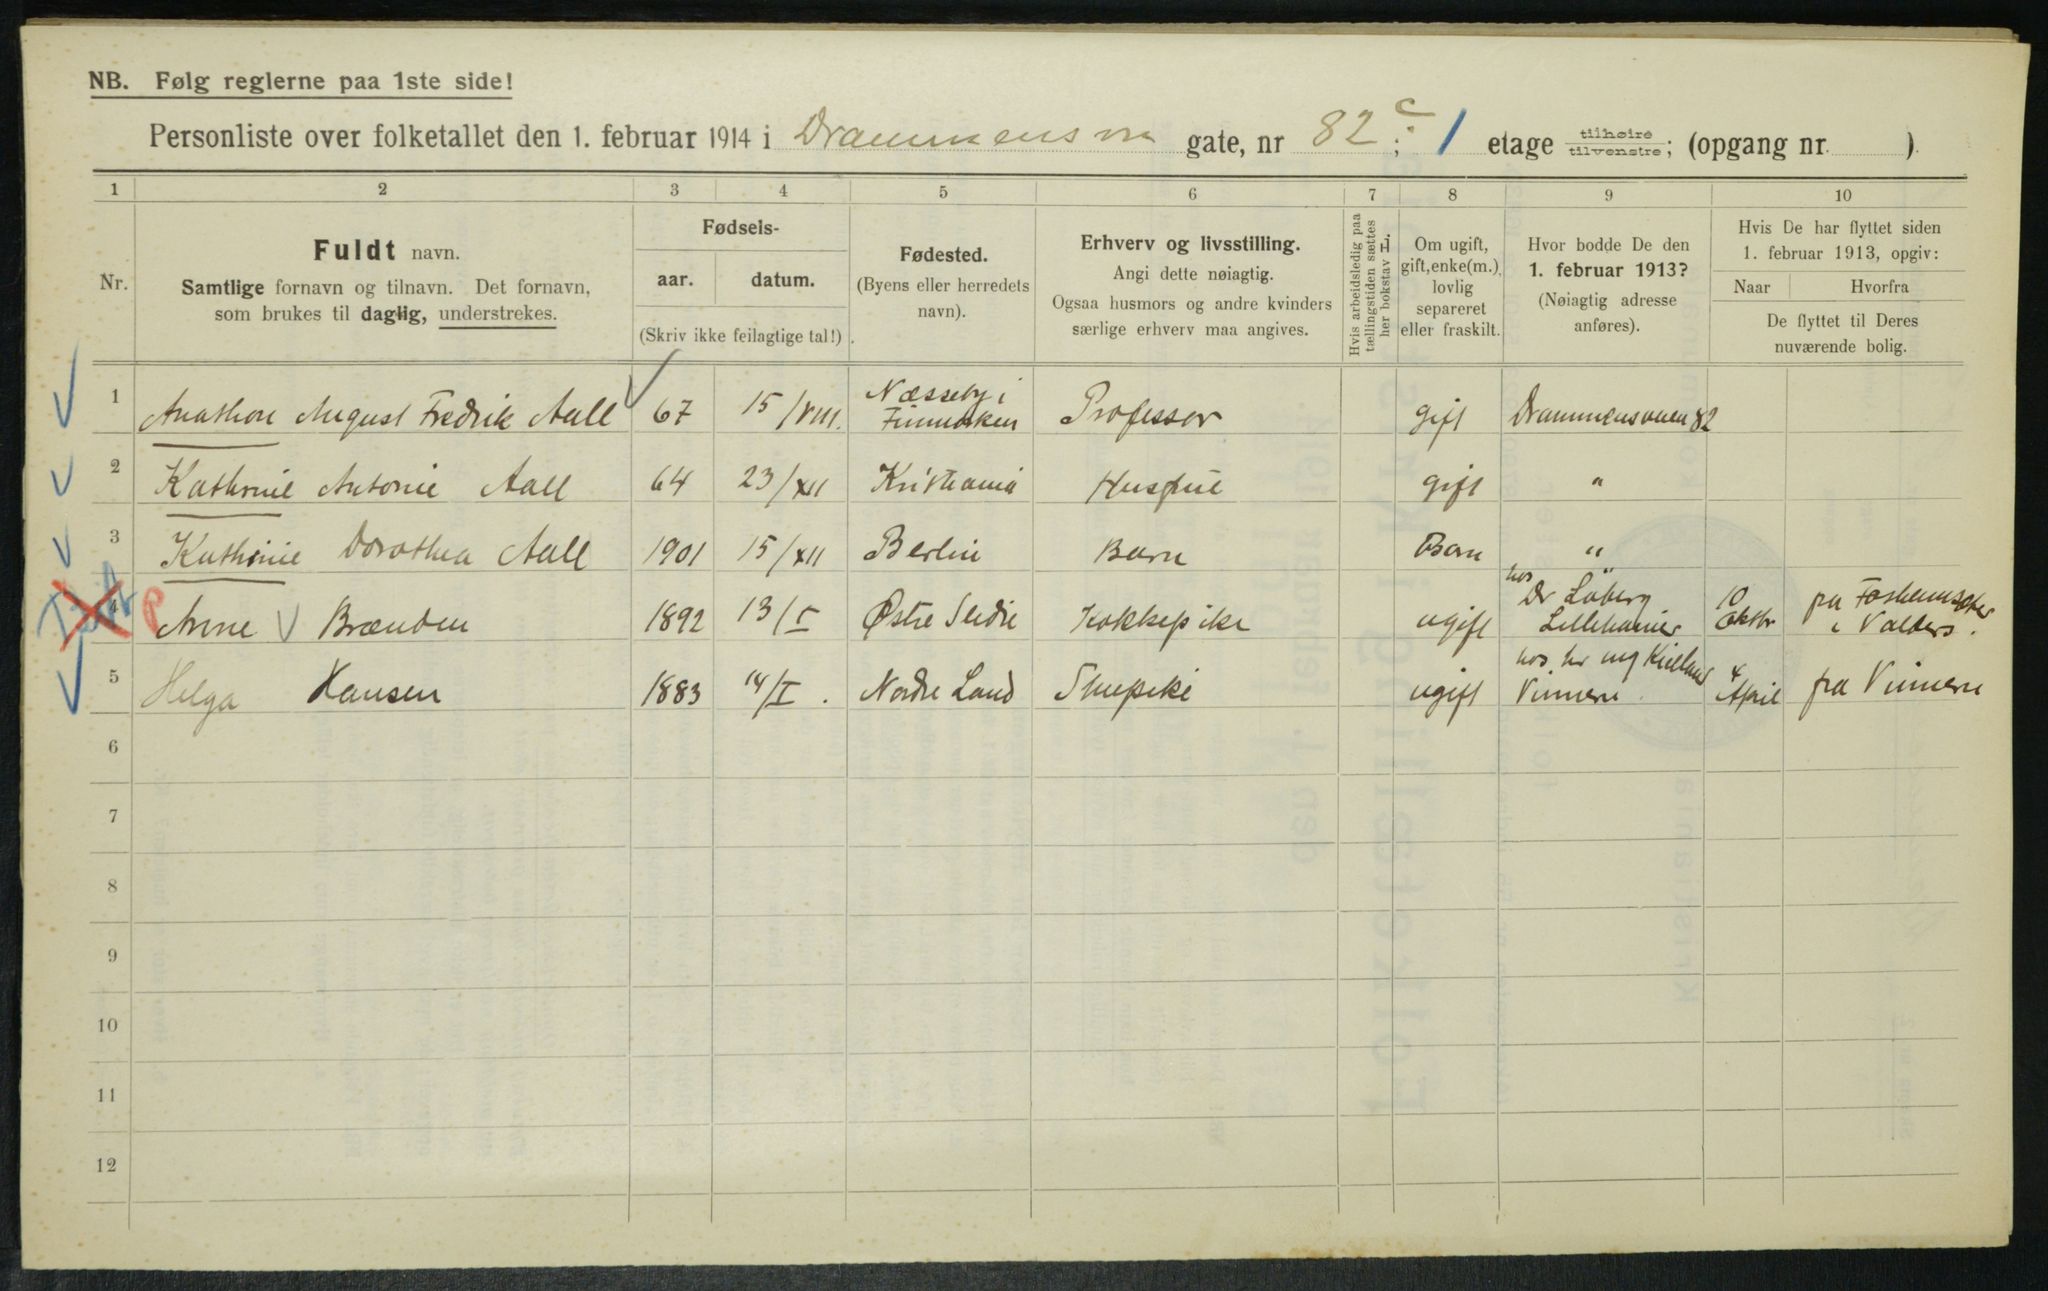 NB. Følg reglerne paa 1ste side!
Personliste over folketallet den 1. februar 1914 i Drammensvn gate, nr 82 c; 1 etage tilhøire/tilvenstre; (opgang nr. )
1 2 3 4 5 6 7 8 9 10
Nr.
Fuldt navn.
Samtlige fornavn og tilnavn. Det fornavn,
som brukes til daglig, understrekes.
Fødsels-
aar. datum.
(Skriv ikke feilagtige tal!)
Fødested.
(Byens eller herredets
navn).
Erhverv og livsstilling.
Angi dette nøiagtig.
Ogsaa husmors og andre kvinders
særlige erhverv maa angives.
Hvis arbeidsledig paa
tællingstiden sættes
her bokstav L.
Om ugift,
gift, enke(m.),
lovlig
separeret
eller fraskilt.
Hvor bodde De den
1. februar 1913?
(Nøiagtig adresse
anføres).
Hvis De har flyttet siden
1. februar 1913, opgiv:
Naar Hvorfra
De flyttet til Deres
nuværende bolig.
1 Anathon August Fredrik Aall 67 15/VIII. Næsseby i Finmarken Professor gift Drammensveien 82
2 Kathrine Antonie Aall 64 23/XII Kristiania Husfrue gift "
3 Kathrine Dorothea Aall 1901 15/XII Berlin Barn Barn "
4 Anne Brænden 1892 13/I Østre Slidre Kokkepike ugift hos Dr Løberg Lillehamer 10 Oktbr fra i Valders.
5 Helga Hansen 1883 14/I. Nordre Land Stuepike ugift hos Kielland Vinneren. 4 April fra Vinneren
6
7
8
9
10
11
12